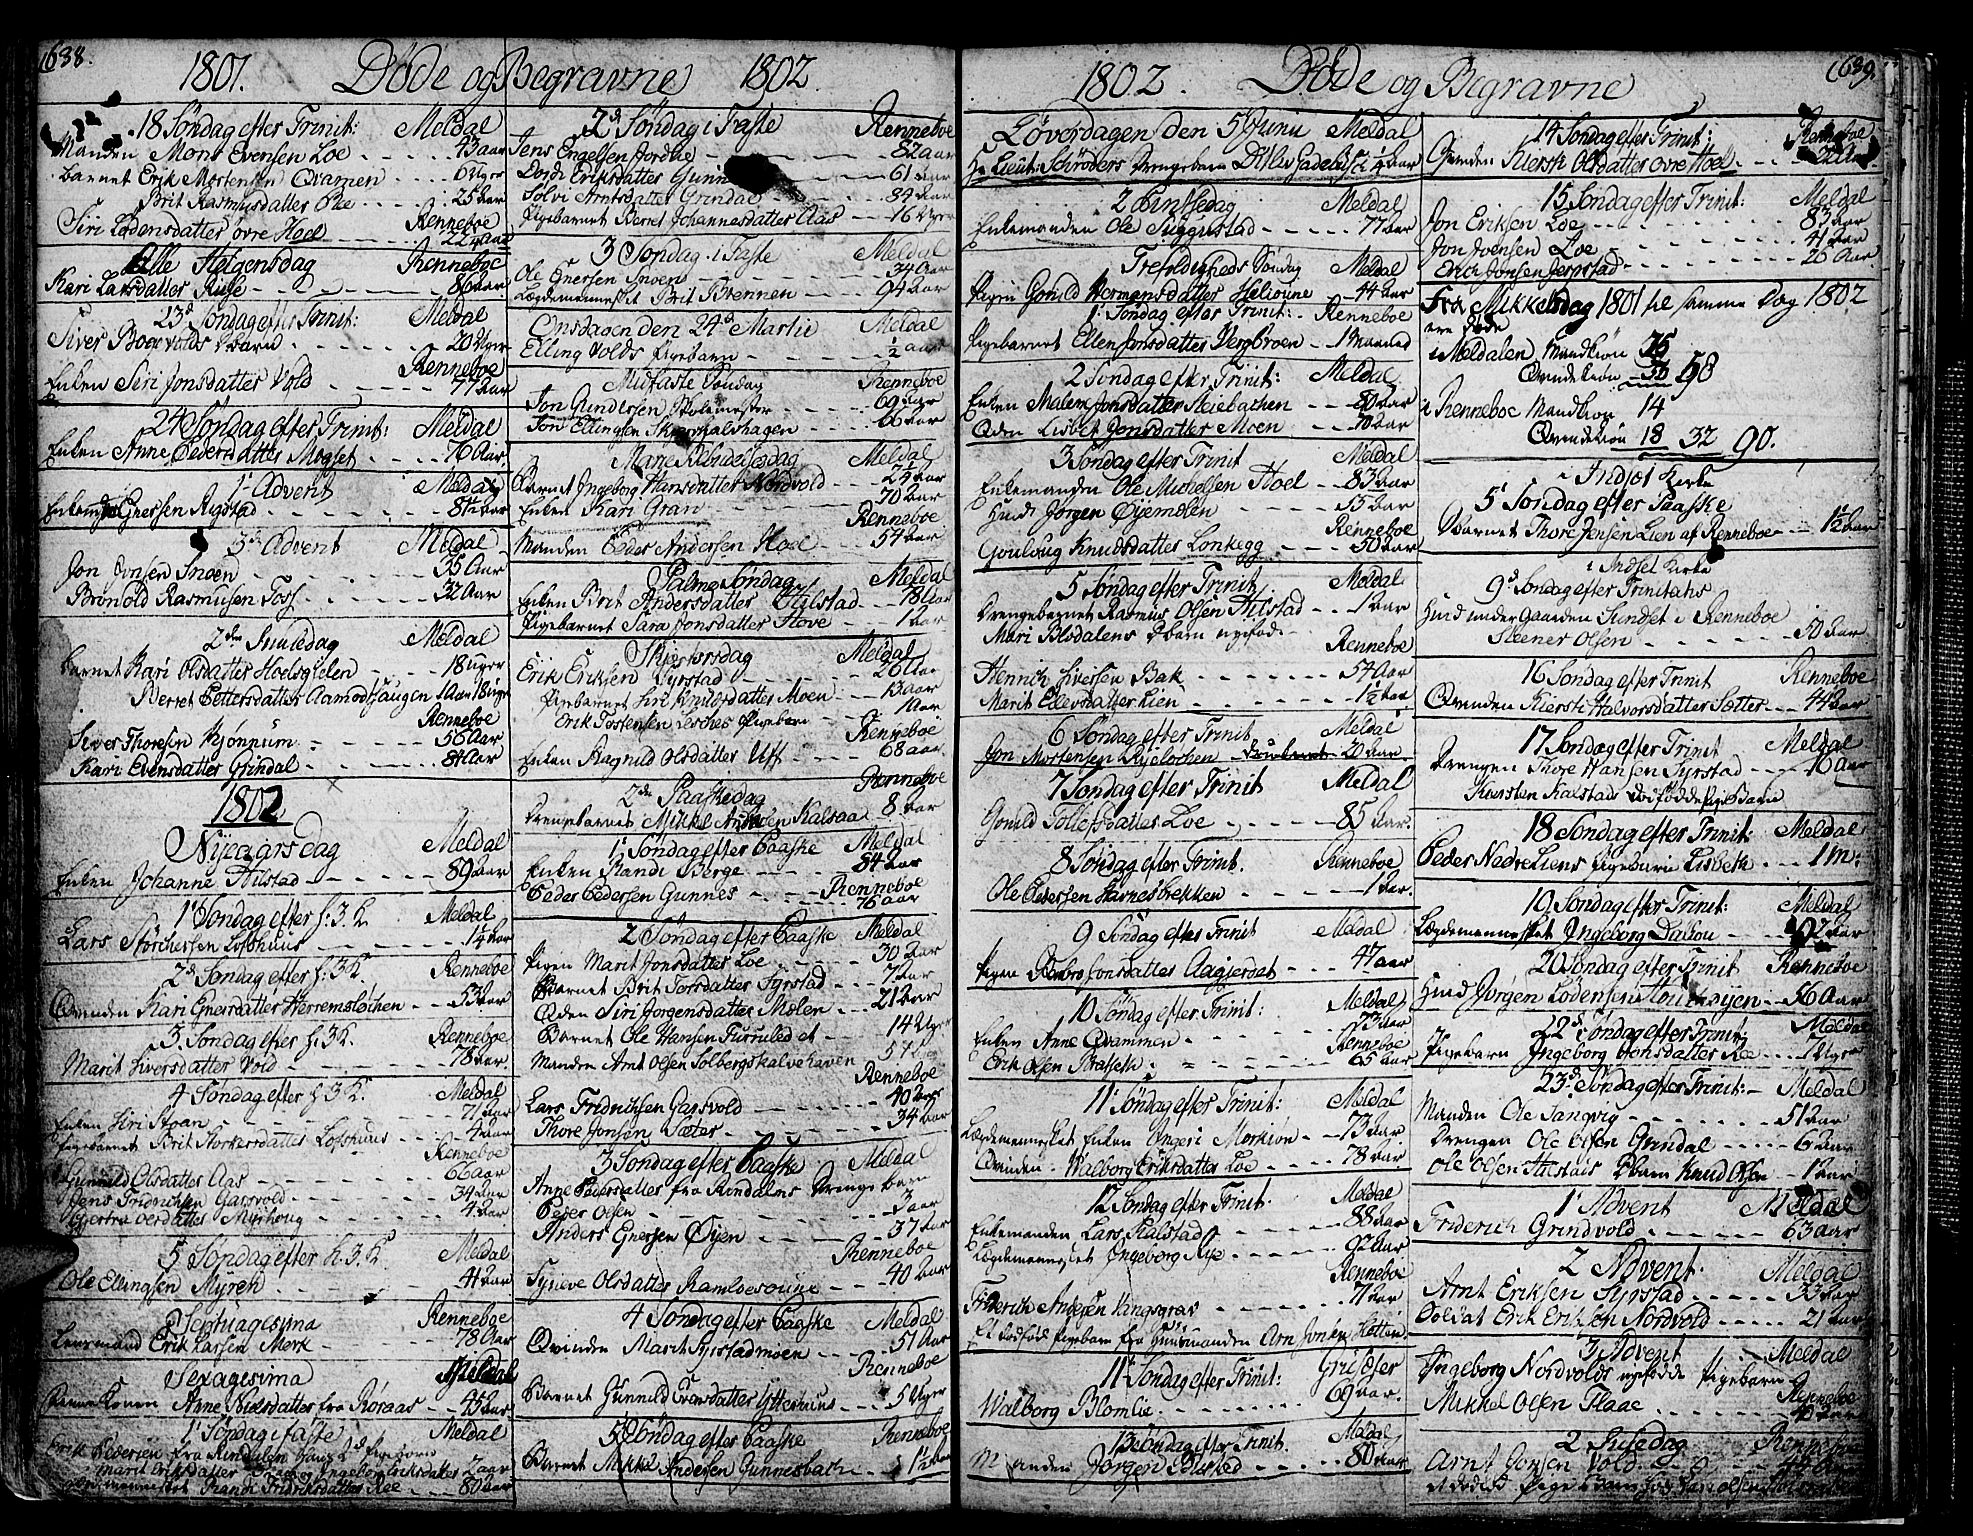 638.
1801. Døde og Begravne 1802.
18 Søndag efter Trinit: Meldal
Manden Mons Evensen Loe 43 aar
barnet Erik Mortensen Qvamen 6 Uger
Brit Rasmusdatter Oie 25 aar
Renneboe
Siri Lodensdatter øvre Hoel
Alle Helgensdag Renneboe
Kari Larsdatter Ruse 80 aar
23d Søndag efter Trinit: Meldal
Siver Boervolds barn 20 Uger
Renneboe
Enken Siri Jonsdatter Vold 77 aar
24 Søndag efter Trinit: Meldal
Enken Anne Pedersdatter Mogset 76 Aar.
1 Advent Meldal
3 Advent Meldal
Jon Jonsen Snoen 35 Aar
Bronold Rasmusen Foss 32 Aar
2den Juuledag Meldal
barnet Kari Olsdatter Hoelsgielen 18 uger
Berret Pettersdatter Aamodthaugen 1 Aar 18 uger
Renneboe
Siver Thoresen Kjønnum 56 Aar
Kari Evensdatter Grindal 84 Aar
1802
Nyeaarsdag Meldal
Enken Johanne Aalstad 89 aar
1 Søndag efter h. 3 K Meldal
Lars Størchersen Lofshuus 1¼ aar
2d Søndag efter h. 3 K. Renneboe
Qvinden Kari Enersdatter Herremsløchen 53 aar
3. Søndag efter h. 3 K. Renneboe
Marit Siversdatter Vold 78 aar.
4 Søndag efter h 3 K. Meldal
Enken Siri Stoan 71 aar
Pigebarnet Brit Storkersdatter Lofshuus 4 aar
Renneboe
Gunnild Olsdatter Aas 66 aar
Jens Fridrichsen Garsvold 34 aar
4 aar
5 Søndag efter h. 3 K Meldal
Ole Ellingsen Myren 41 aar
Septuagesima Renneboe
Lensmand Erik Larsen Merk 78 Aar
Sexagesima Meldal
Anne Nielsdatter fra Røraas 45 aar
1 Søndag i faste Meldal
Erik Pedersen fra Rindalen hans 2d Pigebørn
Marit Eriksdatter Ingebor Eriksdatter 2 aar
Randi Fridriksdatter Ree 80 aar
2d Søndag i Faste Renneboe
Jens Engelsen Jordhe 82 aar
Dordi Eriksdatter 61 aar
Solvi Arntsdatter Grindal 84 aar
Pigebarnet Berret Johannesdatter Aas 16 Uger
3 Søndag i Faste Meldal
Ole Enersen Snoen 34 aar
Lægdemennesket Brit Brennen 94 aar
Onsdagen den 24d Martii Meldal
Elling Volds Pigebarn ½ aar
Midfaste Søndag Renneboe
Jon Gundersen Skolemester 69 aar
Jon Ellingsen 66 aar
Marie Bebudelsesdag Meldal
Barnet Ingeborg Hansdatter Nordvold 2¼ aar
Enken Kari Gran 70 aar
Renneboe
Manden Peder Andersen Hoel 54 aar
Palme Søndag Meldal
Enken Brit Andersdatter Halstad 78 Aar
Pigebarnet Sara Jonsdatter Hove 1 aar
Skjærtorsdag Meldal
Erik Eriksen Syrstad 26 Aar
Pigebarnet Siri Knudsdatter Moen 13 aar
Erik Tostensen Lesches Pigebarn 1 Aar
Renneboe
Enken Ragnild Olsdatter Uff 68 aar
2den Paaskedag Renneboe
Drengebarnet Mikkel Kalsaa 8 aar
1 Søndag efter Paaske Meldal
Enken Randi Berge 84 aar
Renneboe
Peder Pedersen Gunnes 76 aar
2 Søndag efter Paaske Meldal
Pigen Marit Jonsdatter Loe 30 aar
Barnet Brit Torsdatter Syrstad 7 aar
Qden Siri Jorgensdatter Mælen 21 aar
Barnet Ole Hansen Furruled et 14 Uger
Manden Arnt Olsen Solbergskalvehaven
Renneboe
Lars Fridrichsen Garsvold 40 aar
Thore Jonsen Sæter 34 aar
3 Søndag efter Paaske Meldal
Anne fra Rindalens Drengebarn
Peder Olsen 3 aar
Anders Enersen Øien 37 aar
Renneboe
Synneve Olsdatter Ramldesoune 40 aar
4 Søndag efter Paaske Meldal
Qvinden Marit Syrstadmoen 51 Aar
Renneboe
Barnet Gunnild Torsdatter Ytterhuus 5 Uger
5 Søndag efter Paaske Renneboe
Barnet Mikkel Andersen Gunnesbach 1½ aar
639.
1802. Døde og Begravne
Løverdagen den 5 Junii Meldal
Hr Lieut: Schrøders Drengebarn Ditlev
2 Pintsedag Meldal
Enkemanden Ole Siggustad 77 aar
Trefoldigheds Søndag Meldal
Pigen Gonild Hermansdatter 44 aar
1 Søndag efter Trinit: Renneboe
Pigebarnet Ellen Jonsdatter Bergbroen 1 Maaned
2 Søndag efter Trinit: Meldal
Enken Malene Jonsdatter Steiebachen 80 aar
Qden Lisbet Jensdatter Moen 70 aar:
3 Søndag efter Trinit Meldal
Enkemanden Ole Michelsen Hoel 83 aar
Huusmd Jørgen Øjemdlen 55 aar
Renneboe
Goulaug Knudsdatter Lonkegg 50 aar
5 Søndag efter Trinit Meldal
Drengebarnet Rasmus Olsen Aalstad 1 aar
Mari Blodalens Dbarn nyefødt
Renneboe
Henrich Siversen Bak 54 Aar
Marit Ellevsdatter Lien 1½ aar
6 Søndag efter Trinit Meldal
Jon Mortensen 20 aar
7 Søndag efter Trinit Meldal
Gonild Tollefsdatter Loe 85 aar.
8 Søndag efter Trinit. Renneboe
Ole Pedersen Harnesbekken 1 aar.
9 Søndag efter Trinit Meldal
Pigen Jonsdatter Aagjerdet 47 aar
10 Søndag efter Trinit: Meldal
Enken Anne Qvammen 73 aar
Renneboe
Erik Olsen Bratseth 65 aar
11 Søndag efter Trinit: Meldal
Lægdemennesket Enken Ingeri Merkiøn 73 aar
Qvinden Walborg Eriksdatter Loe 78 aar
12 Søndag efter Trinit. Meldal
Enkemanden Lars Kalstad 88 aar
Lægdemennesket Ingeborg Rye 92 aar
Renneboe
Friderich Andersen Vangsgrav 71 aar
Et dødfød Pigebarn fra Huusmanden Arn Jonsen Hetten
11 Søndag efter Trinit: Grisetser
Walborg Blomlie 69 aar.
13 Søndag efter Trinit. Meldal
Manden Jørgen 80 aar
14 Søndag efter Trinit: Renneboe
Qvinden Kiersti Olsdatter øvre Hoel
15 Søndag efter Trinit: Meldal
Jon Eriksen Loe 83 aar
Jon Joensen Loe 41 aar
Erich Jonsen Jerpstad 25 aar
Fra Mikkelsdag 1801 til samme Dag 1802
ere døde
i Meldalen Mandkiøn
Qvindekiøn 58
i Renneboe Mandkiøn 14
Qvindekiøn 18 32 90.
i Indset Kirke
5 Søndag efter Paaske
Barnet Thore Jensen Lien af Renneboe 1½ aar
i Indset Kirke
9d Søndag efter Trinitatis
Huusmd under Gaarden Sundset i Renneboe
Steener Olsen 50 aar
16 Søndag efter Trinit Renneboe
Qvinden Kiersti Halvorsdatter Sætter 44 aar
17 Søndag efter Trinit Meldal
Drengen Thore Hansen Syrstad 16 Aar
Karsten Kalstads dødfødde Pigebarn
18 Søndag efter Trinit: Meldal
Peder Nedre Liens Pigebarn Lisbeth 1 m:
19 Søndag efter Trinit: Meldal
Lægdemennesket Ingeborg Dalou 92 aar
20 Søndag efter Trinit Renneboe
Huusmd Jørgen Lodensen 56 Aar
22d Søndag efter Trinit: Meldal
Pigebarn Ingeborg Hansdatter Ree 7 Uger
23d Søndag efter Trinit: Meldal
Manden Ole Sangvig 51 aar
Drengen Ole Olsen Grindal 6 aar
Ole Olsen Aalstads Dbarn Knud Olsen 1 aar
1 Advent Meldal
Friderich Grindvold 63 aar
2 Advent. Meldal
Arnt Eriksen Syrstad 53 aar
Soldat Erik Eriksen Nordvold 21 aar
3 Advent Meldal
Ingeborg Nordvolds nyefødde Pigebarn
Renneboe
Mikkel Olsen Flaae
2 Juledag Renneboe
Arnt Jonsen Vold